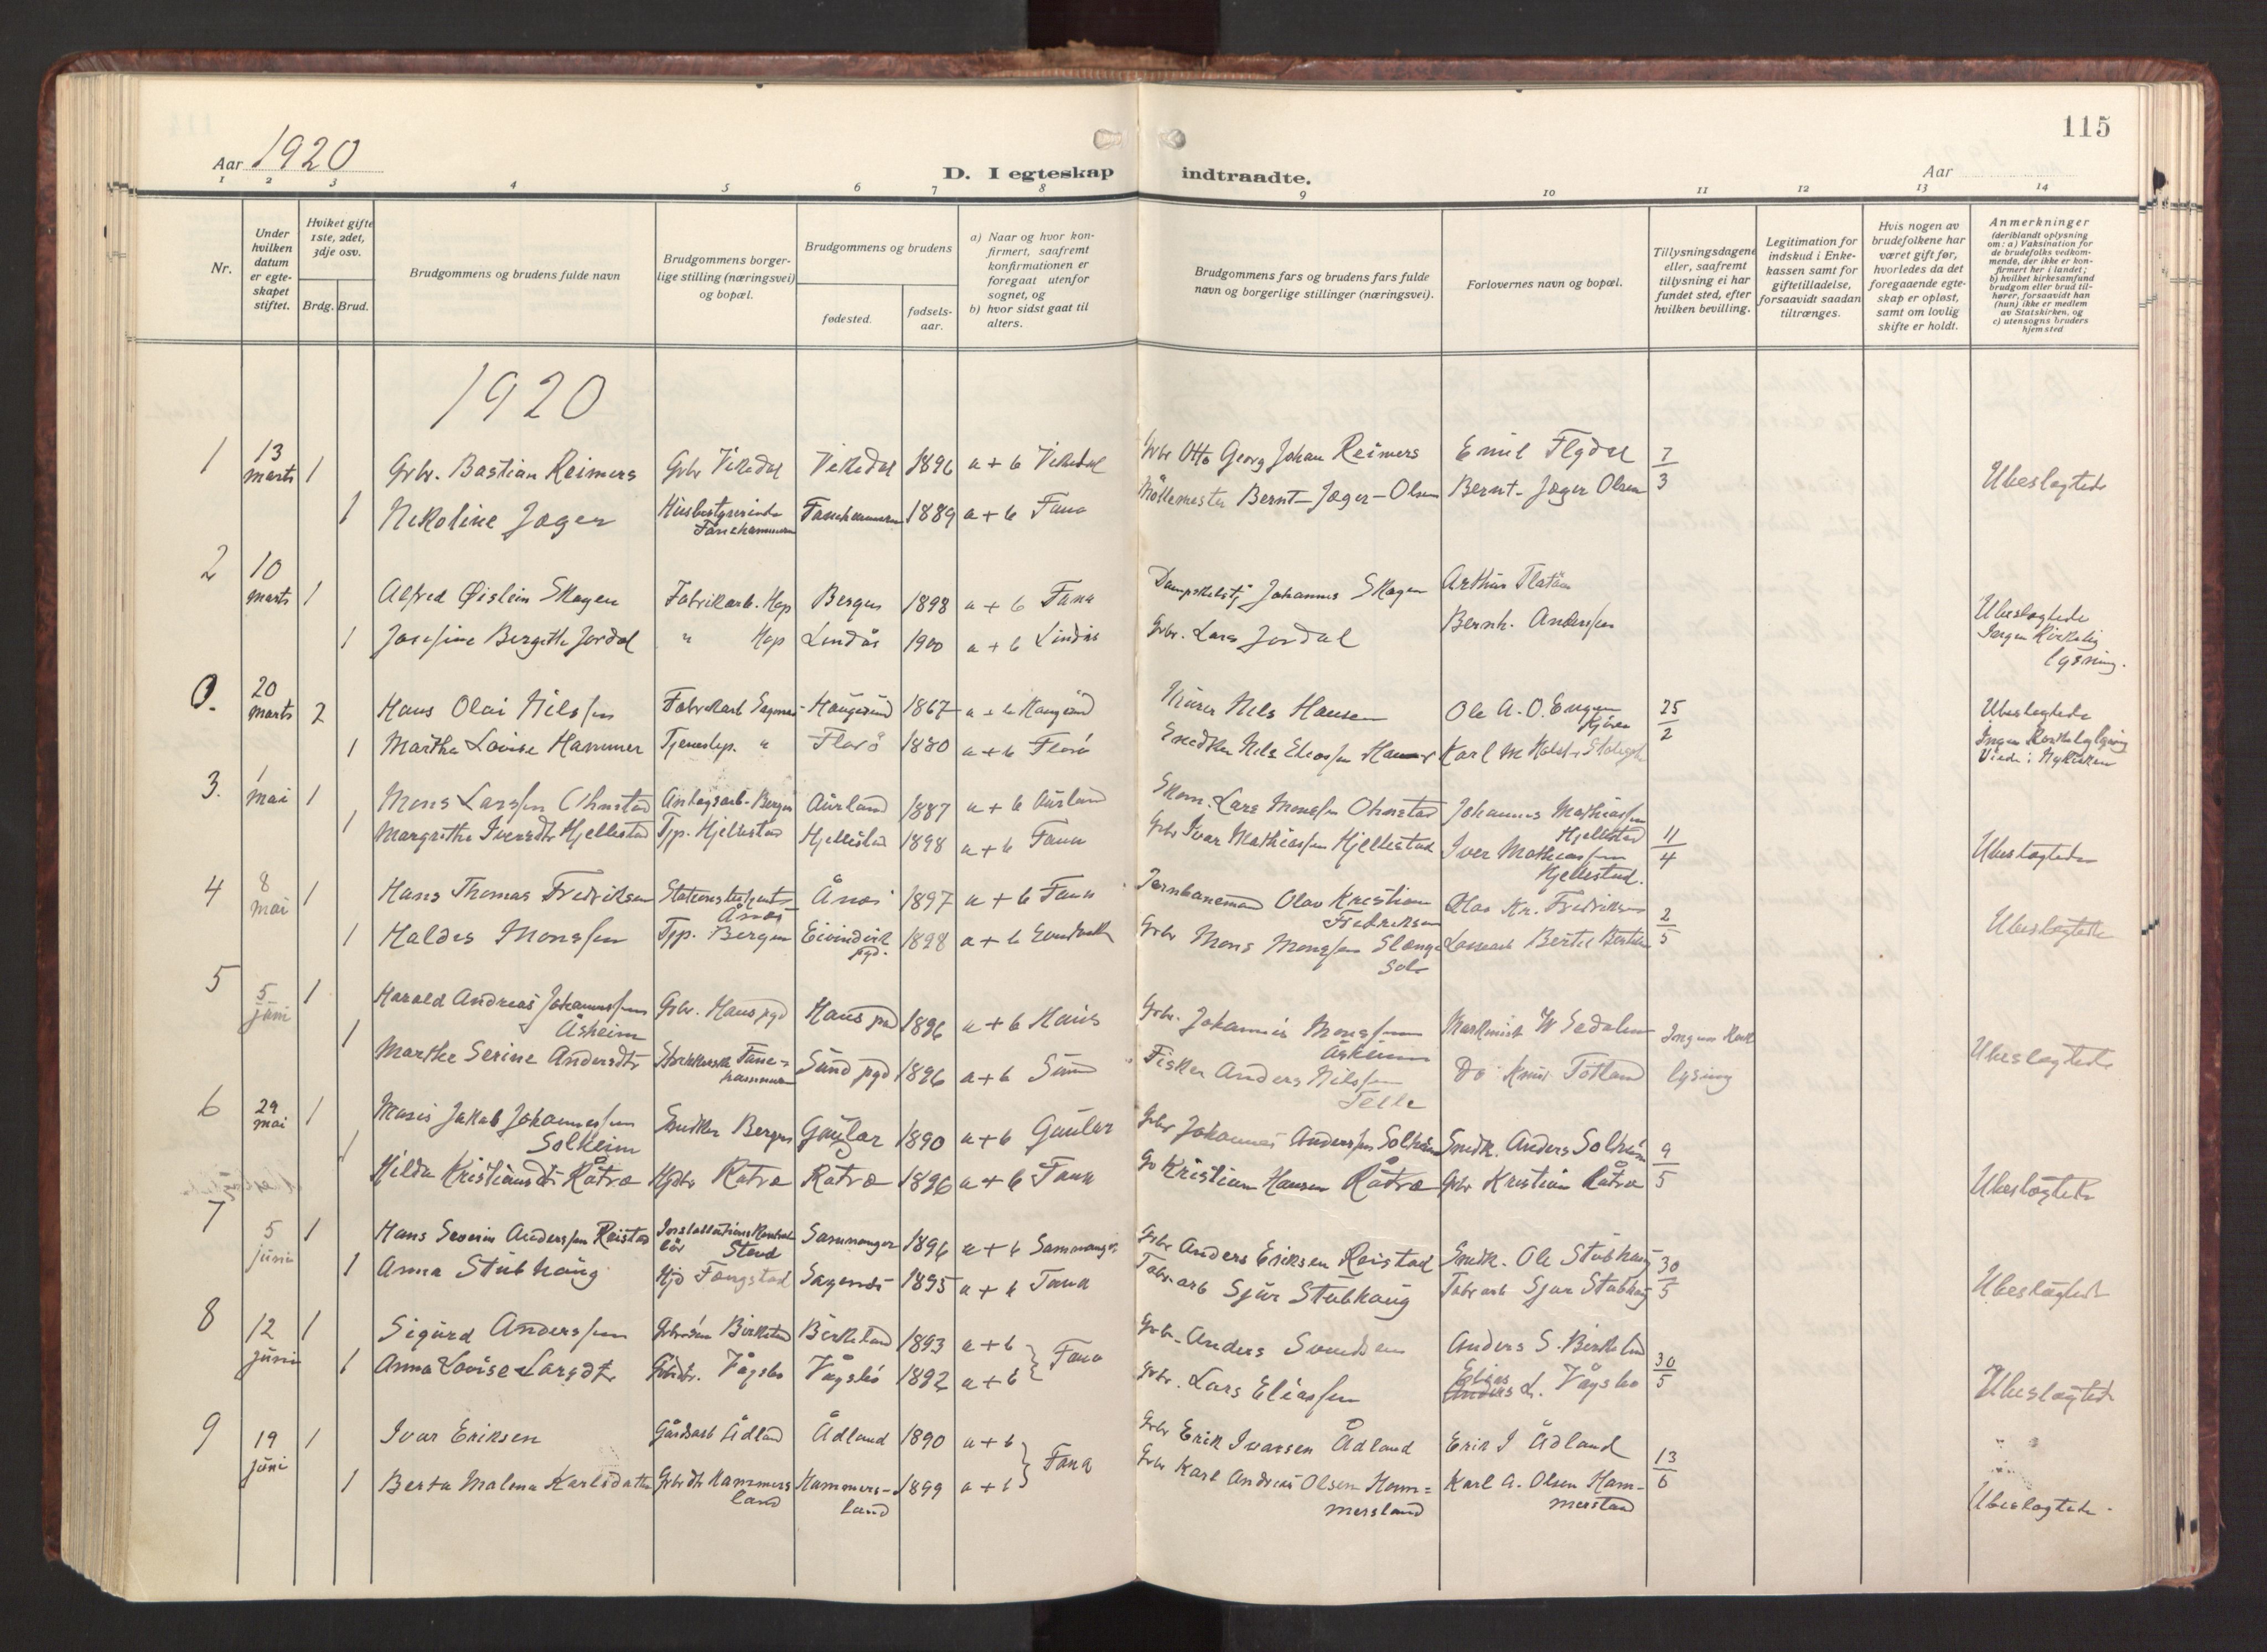 115
Aar 1920
D. I egteskap indtraadte.
Aar
1 2 3 4 5 6 7 8 9 10 11 12 13 14
Nr.
Under hvilken datum er egteskapet stiftet.
Hviket gifte 1ste, 2det, 3dje osv.
Brdg. Brud.
Brudgommens og brudens fulde navn
Brudgommens borgerlige stilling (næringsvei) og bopæl.
Brudgommens og brudens
fødested.
fødselsaar.
a) Naar og hvor konfirmert, saafremt konfirmationen er foregaat utenfor sognet, og
b) hvor sidst gaat til alters.
Brudgommens fars og brudens fars fulde navn og borgerlige stillinger (næringsvei).
Forlovernes navn og bopæl.
Tillysningsdagene eller, saafremt tillysning ei har fundet sted, efter hvilken bevilling.
Legitimation for indskud i Enkekassen samt for giftetilladelse, forsaavidt saadan tiltrænges.
Hvis nogen av brudefolkene har været gift før, hvorledes da det foregaaende egteskap er opløst, samt om lovlig skifte er holdt.
Anmerkninger
(deriblandt oplysning om: a) Vaksination for de brudefolks vedkommende, der ikke er konfirmert her i landet; b) hvilket kirkesamfund brudgom eller brud tilhører, forsaavidt han (hun) ikke er medlem av Statskirken, og c) utensogns bruders hjemsted
1920
1 13 marts 1 Grbr. Bastian Reimers Gbr Vikedal Vikedal 1896 a + b Vikedal Grbr Otto Georg Johan Reimers Emil Flydal 7/3 Ubeslegtede
1 Nikoline Jæger Husbestyrerinde Fanehammeren Fanehammeren 1889 a + b Fana Møllemester Bernt Jæger-Olsen Bernt Jæger Olsen
2 10 marts 1 Alfred Øistein Skagen Fabrikarb. Hop Bergen 1898 a + b Fana Johannes Skagen Arthur Flatøen Ubeslegtede
1 Josefine Bergithe Jordal " Hop Lindås 1900 a + b Lindås Grbr. Lars Jordal Bernh. Anderssen Ingen Kirkelig lysning.
0. 20 marts 2 Hans Olai Nilssen Fabrikarb Haugesund 1867 a + b Haugesund Nils Hansen Ole A. O. 25/2 Ubeslegtede
1 Martha Lovise Hammer Tjenestep. " Florø 1880 a + b Florø Snedker Nils Eliassen Hammer Karl M Ingen Kirkelig lysning
Viede i Nykirken
3. 1 mai 1 Mons Larssen Ohnstad Anlegsarb. Bergen Aurland 1887 a + b Aurland Lars Monssen Ohnstad Johannes Mathiassen Hjellestad 11/4 Ubeslegtede
1 Margrethe Iversdtr Hjellestad Tjp. Hjellestad Hjellestad 1898 a + b Fana Grbr Ivar Mathiassen Hjellestad Iver Mathiassen Hjellestad.
4 8 mai 1 Hans Thomas Fredriksen Ånes 1897 a + b Fana Jernbanemand Olav Kristian Fredriksen Olav Kr. Fredriksen 2/5 Ubeslegtede
1 Haldis Monssen Tjp. Bergen Eivindvik pgd. 1898 a + b Eivindvik Grbr Mons Monssen Bertel
5 5 juni 1 Harald Andreas Johannessen Åsheim Grbr. Haus pgd Haus pgd 1896 a + b Haus Grbr. Johannes Monssen Åsheim Maskinist Ingen Kirk lysning Ubeslegtede
1 Marthe Serine Andersdtr Fanehammeren Sund pgd 1896 a + b Sund Fisker Anders Nilssen Telle Do Knut Totland
6 29 mai 1 Mons Jakob Johannessen Solheim Snedker Bergen Gaular 1890 a + b Gaular Grbr Johannes Anderssen Solheim Snedk. Anders Solheim 9/5 Ubeslegtede
1 Hilda Kristiansdtr Råtræ Råtræ Råtræ 1896 a + b Fana Gb Kristian Hansen Råtræ Grbr Kristian Råtræ
7 5 juni 1 Hans Severin Anderssen Reistad Stend Samnanger 1896 a + b Samnanger Grbr Anders Eriksen Reistad Snedk. Ole Stubhaug 30/5 Ubeslegtede
1 Anna Stubhaug Fangstad 1895 a + b Fana Fabr.arb Sjur Stubhaug Fabr arb Sjur Stubhaug
8 12 juni 1 Sigurd Anderssen Gbrsøn Birkeland Birkeland 1893 a + b Fana Grbr. Anders Svendsen Anders S. Birkeland 30/5 Ubeslegtede
1 Anna Lovise Larsdtr Gbrdtr. Vågsbø Vågsbø 1892 a + b Grbr. Lars Eliassen Elias L. Vågsbø
9 19 juni 1 Ivar Eriksen Gårdsarb Ådland Ådland 1890 a + b Fana Grbr Erik Ivarsen Ådland Erik I Ådland 13/6
1 Berta Malena Karlsdatter Grbrdtr Hammersland Hammersland 1899 a + b Grbr Karl Andreas Olsen Hammersland Karl A. Olsen Hammerstad Ubeslegtede.